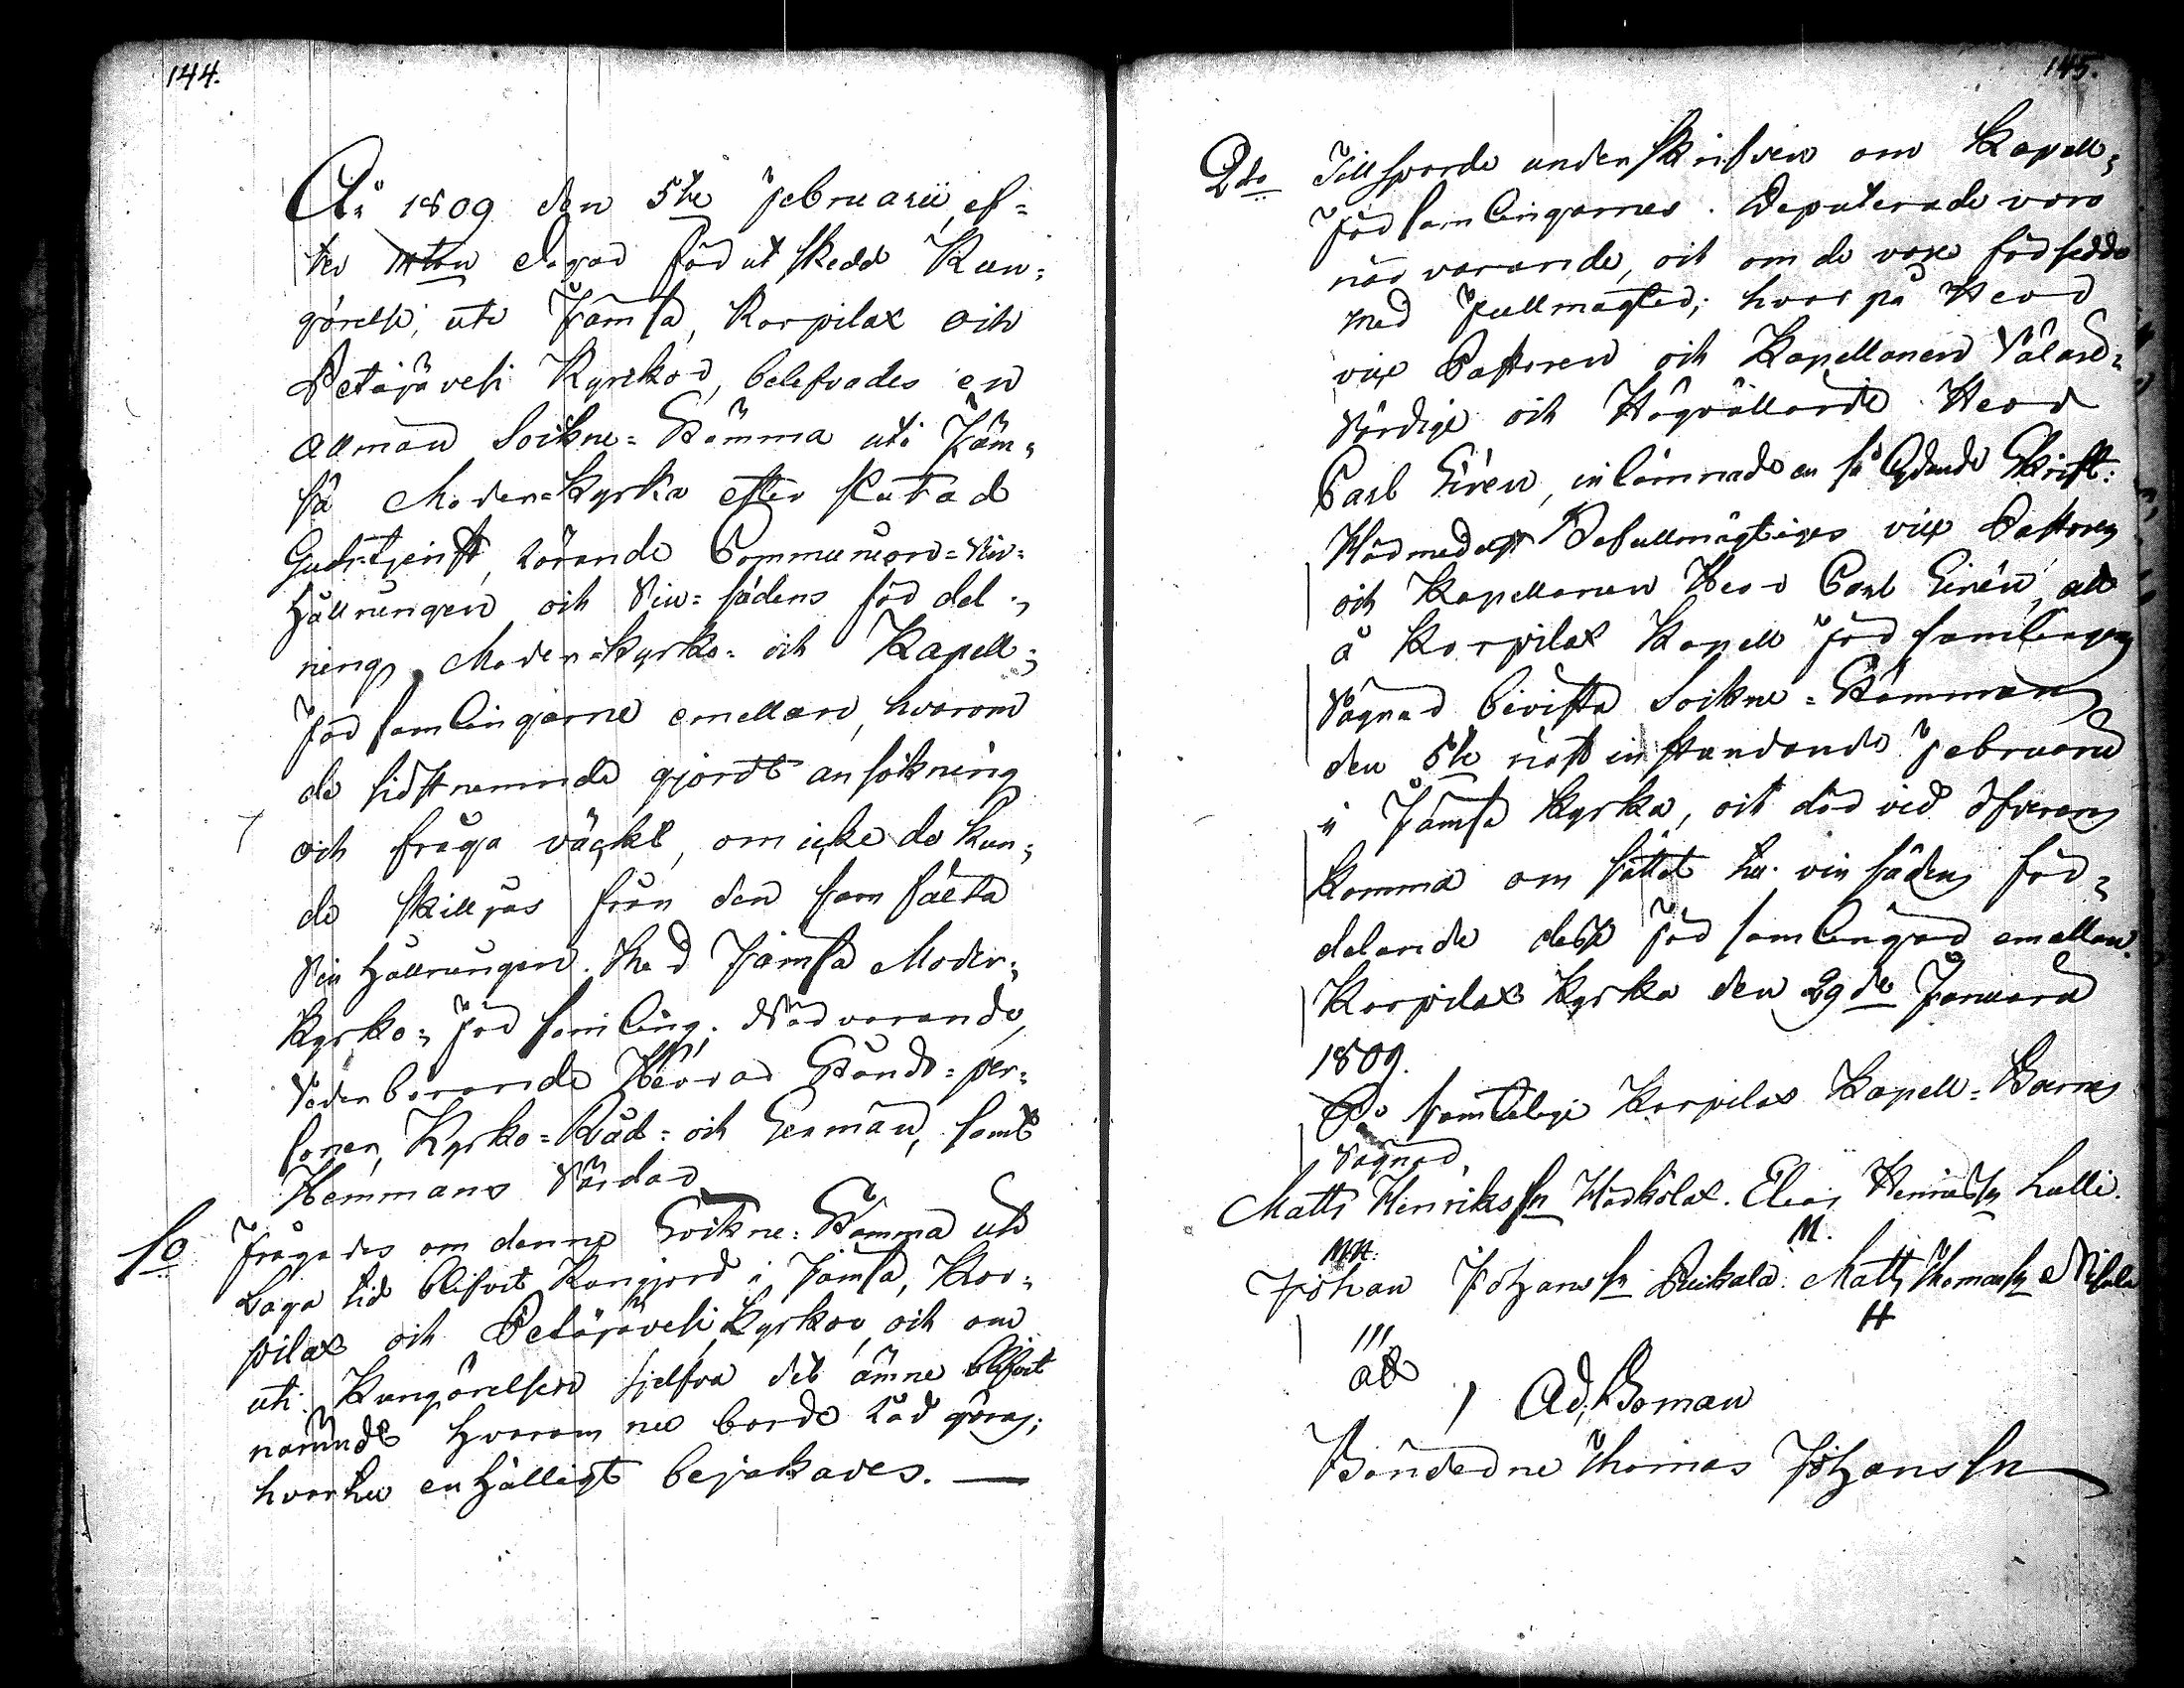 144.
År 1809 den 5te Februarii, ef=
ter dagar förut skedd Kun=
görelse, uti Jämsä, Korpilax och
Petäjävesi Kyrkor, belefvades en
allmän Sockne=Stämma uti Jäm=
sä Moder=Kyrka efter slutad
Gudstjenst, rörande Communion=Vin=
hållningen och Vin=sädens fördel=
ning Moder=Kyrko= och Kapell=
Församlingarne emellan, hvarom
de sidstnemnde gjordt ansökning
och fråga väckt, om icke de kun=
de skilljas från den samfälta
Vinhållningen med Jämsä Moder=
Kyrko=Församling. Närvarande,
Vederbörande Herrar Stånds=per=
soner, Kyrko=Råd= och Sexmän, samt
Hemmans Värdar.
1o Frågades om denne Sockne=Stämma uti
Laga tid blifvit Kungjord i Jämsä, Kor=
pilax och Petäjävesi Kyrkor, och om
uti Kungörelsen sjelfva det ämne blifvit
nämndt hvarom nu borde råd göras;
hvartill enhälligt bejakades. —
145.
2do Tillsporde underskrifven om Kapell=
Församlingarnes Deputerade voro
närvarande, och om de voro försedde
med Fullmagter; hvarpå Herr
vice Pastoren och Kapellanen Välär=
vördige och Högvällärde Herr
Carl Sirén, inlämnade en så lydande Skrift:
Härmedelst Befullmägtiges vice Pastoren
och Kapellanen Herr Carl Sirén, att
å Korpilax Kapell Församlings
Vägnar bivista Sockne=Stämman
den 5te näst instundande Februarii
i Jämsä Kyrka, och där vid öfverens
komma om sättet till vinsädens för=
delande desse Församlingar emellan.
Korpilax Kyrka den 29de Januarii
1809.
På samtelige Korpilax Kapell=Boernes
Vägnar,
Matts Henrikssn Härkölax. Elias Henrikssn Lulli.
M.
Johan Johanssn Ruikala. Matts Thomassn Nisula
III
H
att
Ad. Boman
Bönderne Thomas Johanssn